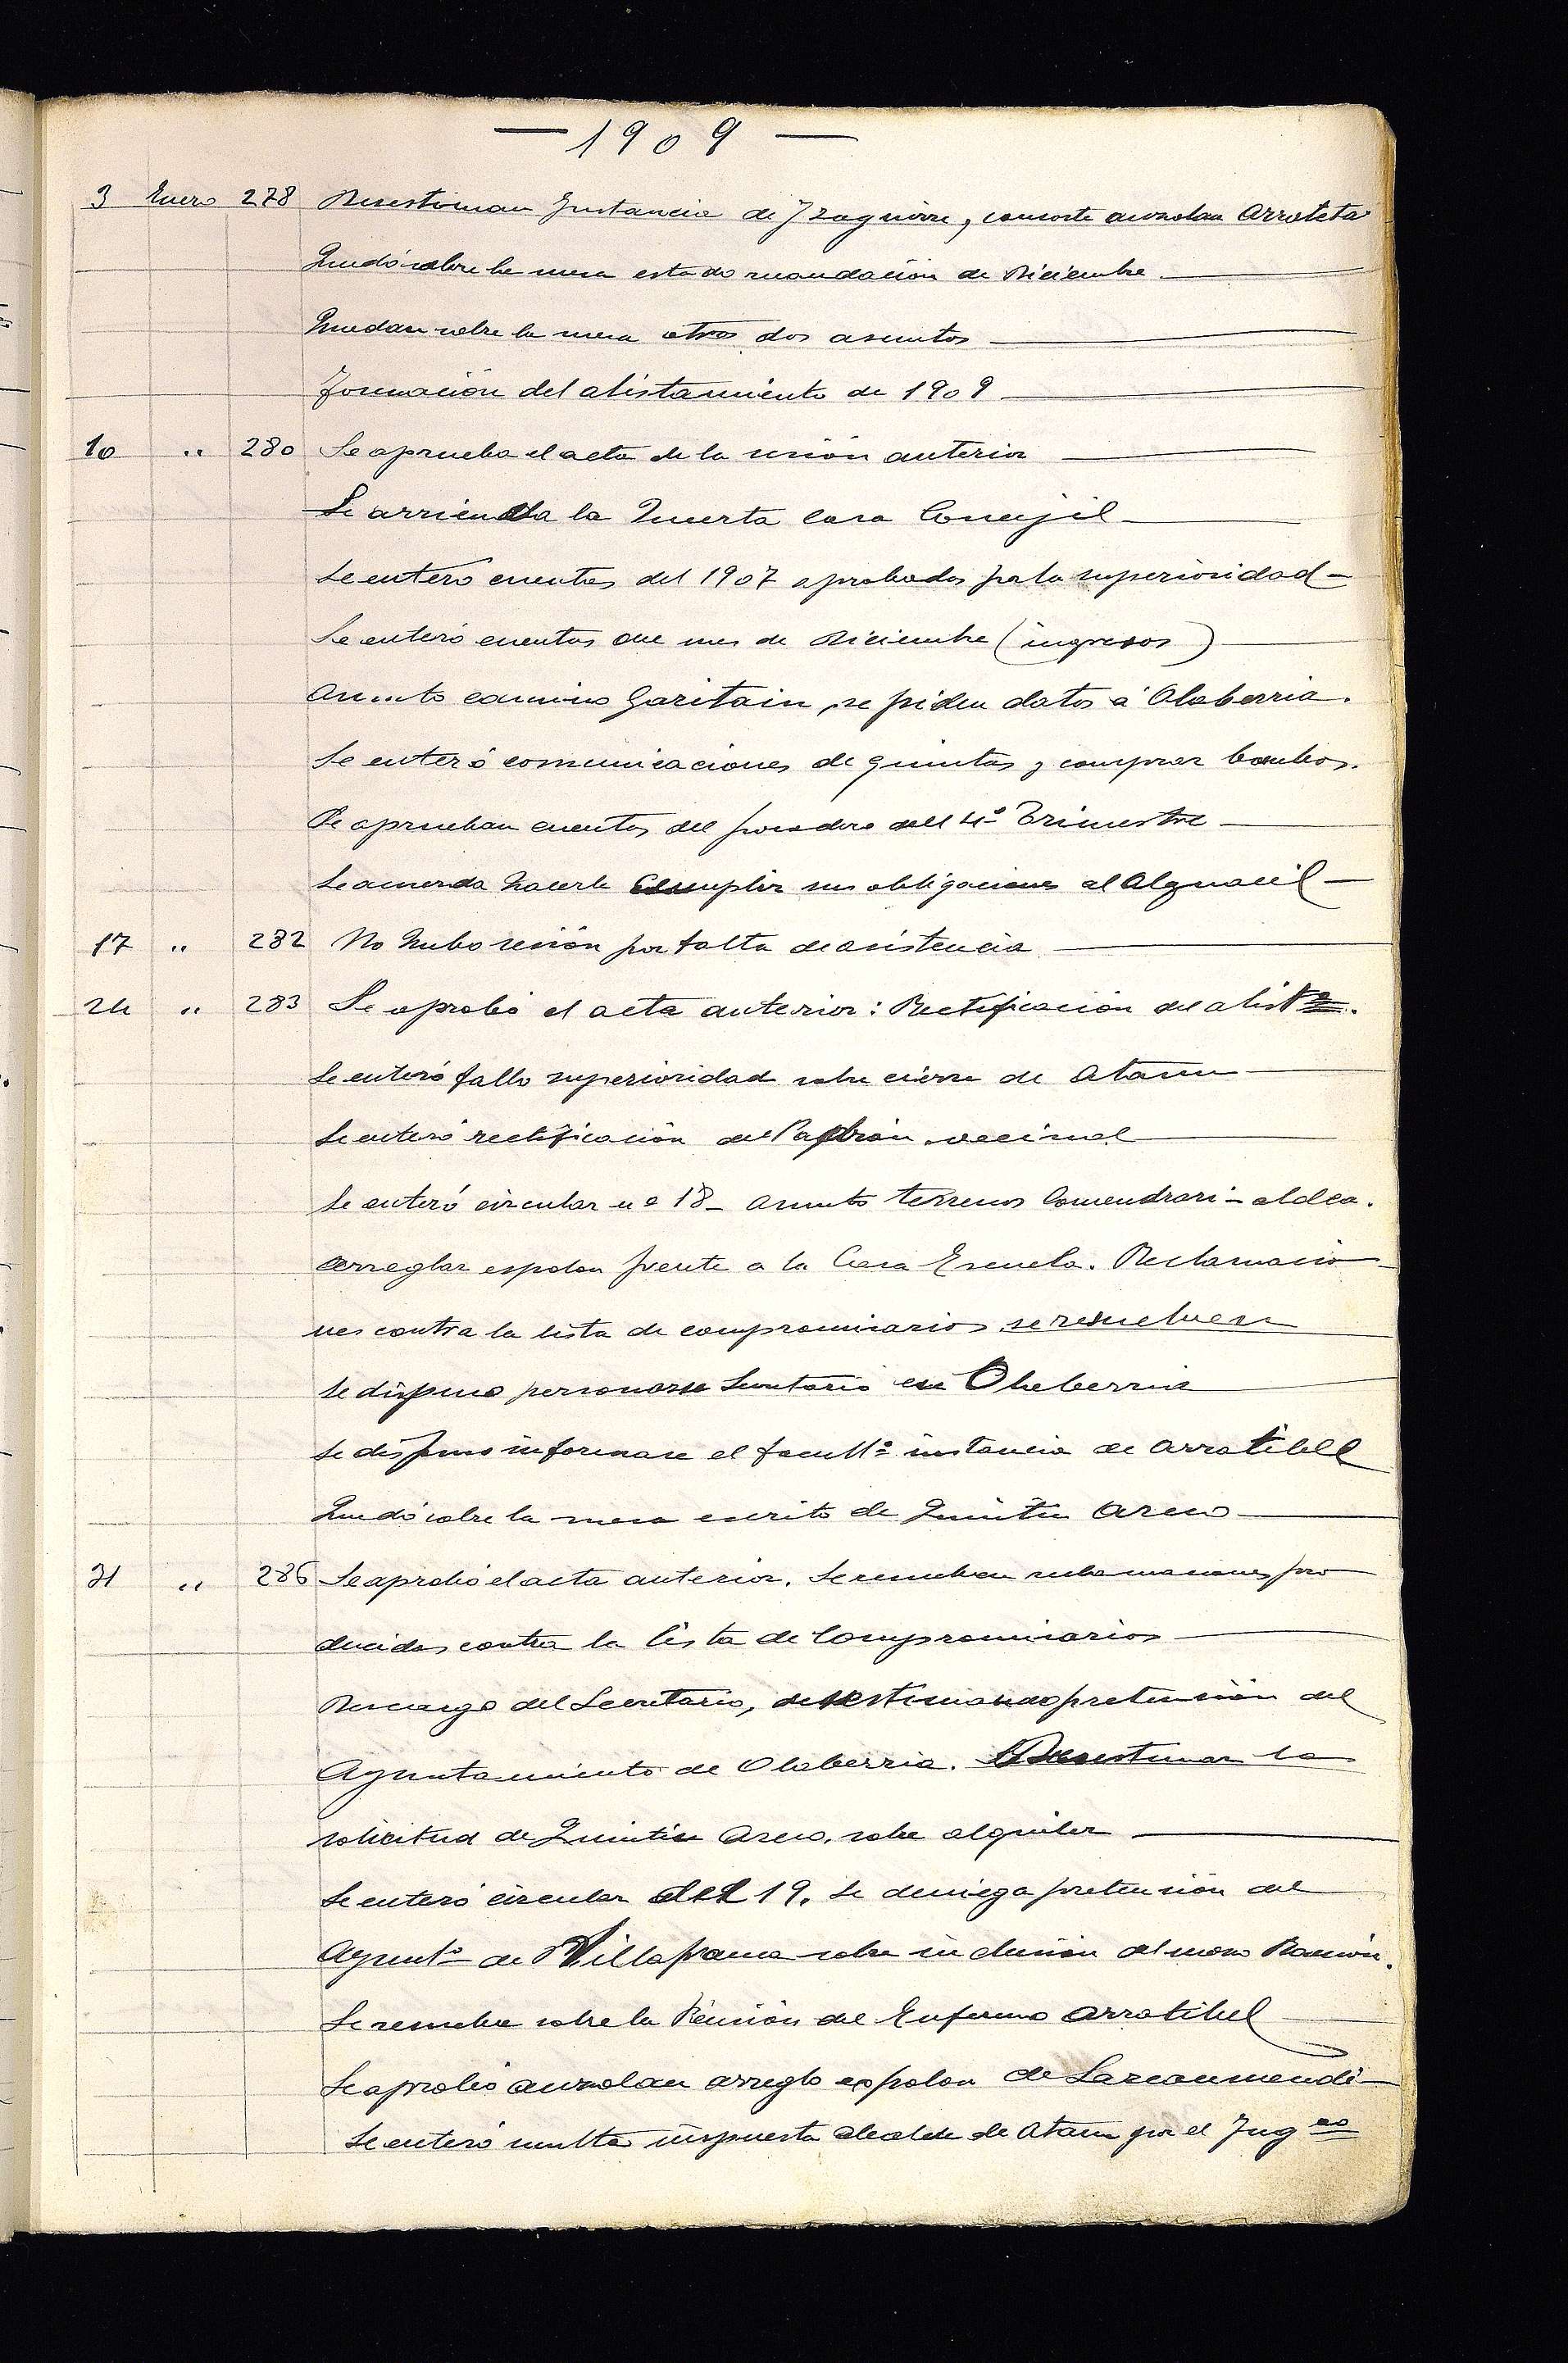 — 1909 —
3 Enero 278 Desestiman Instancia de Izaguirre, consorte auzolan Arrateta
Quedó sobre la mesa estado recaudación de Diciembre
Quedan sobre la mesa otros dos asuntos
Formación del alistamiento de 1909
10 " 280 Se aprueba el acta de la sesión anterior
Se arrienda la Huerta casa Concejil
Se enteró cuentas del 1907 aprobadas por la superioridad
Se enteró cuentas del mes de Diciembre (ingresos)
Asunto camino Garitain, se piden datos á Olaberria.
Se enteró comunicaciones de quintas y comprar bombos.
Se aprueban cuentas del posadero del 4º Trimestre
Se acuerda hacerle cumplir sus obligaciones al Alguacil
17 " 282 No hubo sesión por falta de asistencia
24 " 283 Se aprobó el acta anterior: Rectificación del alist.
Se enteró fallo superioridad sobre cierre de Ataun
Se enteró rectificación del Padrón vecinal
Se enteró circular nº 18 - Asunto terrenos Comendrari - aldea.
Arreglar espolon frente a la Casa Escuela. Reclamacio
nes contra la lista de compromisarios se resuelven
Se dispuso personarse Secretario en Olaberria
Se dispuso informase el facultº instancia de Arratibel
Quedó sobre la mesa escrito de Quintin Areso
31 " 286 Se aprobó el acta anterior. Se resuelven reclamaciones pro
ducidas contra la lista de Compromisarios
Descargo del Secretario, desestimando pretensión del
Ayuntamiento de Olaberria. Desestiman la
solicitud de Quintin Areso, sobre alquiler
Se enteró circular del 19. Se deniega pretensión del
Ayuntº de Villafranca sobre inclusión del mozo Ramón.
Se resuelve sobre la Pensión del Enfermo Arratibel
Se aprobó auzolan arreglo espolon de Lazcaumendi
Se enteró multa impuesta alcalde de Ataun por el Juzgdo